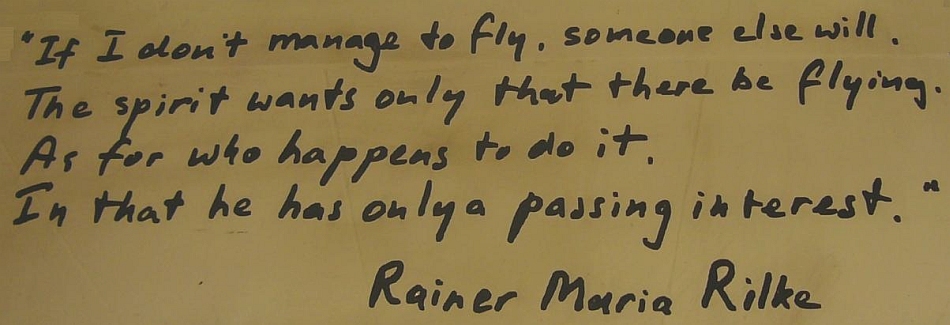 "If I don't manage to fly, someone else will.
The spirit wants only that there be flying.
As for who happens to do it,
In that he has only a passing interest."
Rainer Maria Rilke